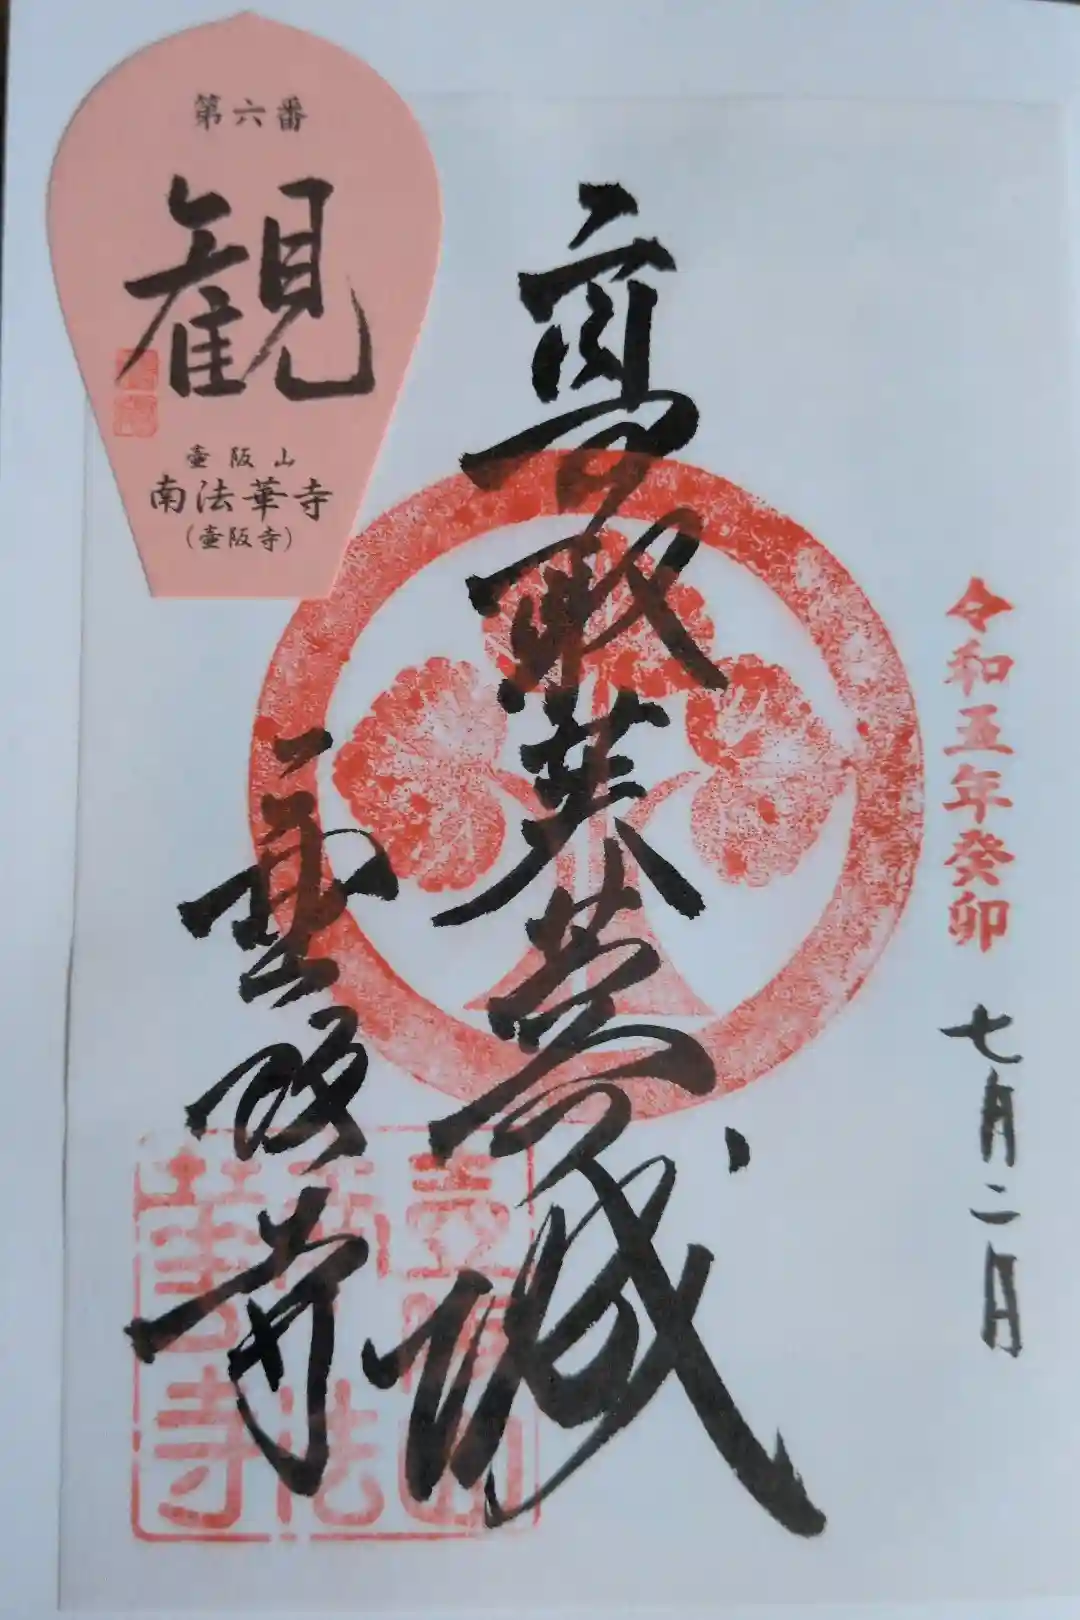 第六番
観
壷阪山
南法華寺
(壷阪寺)
令和五年癸卯 七月二日
高取芙蓉城
壷阪寺
壷阪山
南法
華寺